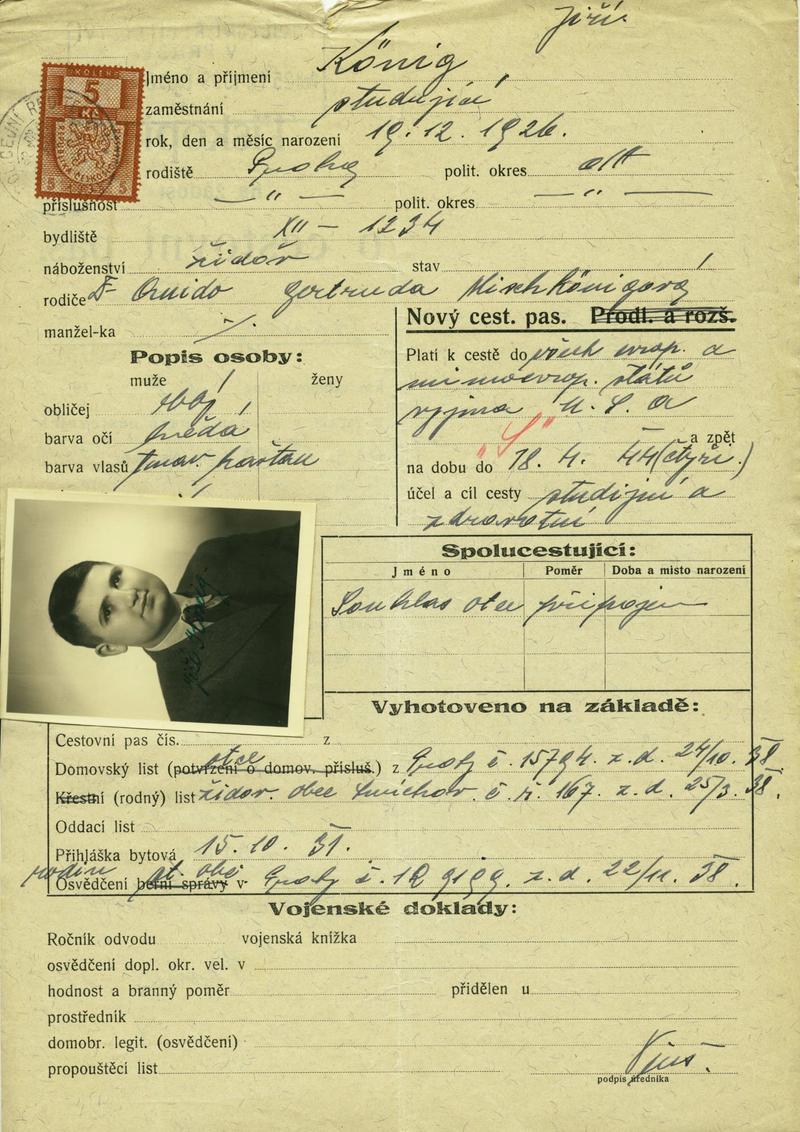 Jiří
Jméno a přijmení König,
zaměstnání studující
rok, den a měsíc narození 19. 12. 1926.
rodiště Praha polit. okres
příslušnost — " — polit. okres — " —
bydliště XII — 1234
náboženství židov
stav /
rodiče Dr Quido Gertruda Königová
manžel-ka ./.
Nový cest. pas. Prodl. a rozš.
Popis osoby:
muže / ženy
obličej
barva očí hnědá
barva vlasů tmav. kaštan
Platí k cestě do všech evrop. a
mimoevrop. států
vyjma U. S. A
"S"
a zpět
na dobu do 18. 4. 44 (čtyři.)
účel a cíl cesty studijní a
zdravotní
Spolucestující:
Jméno Poměr Doba a misto narození
Souhlas otce připojen
Jiří König
Vyhotoveno na základě:
Cestovní pas čís. z
otce
Domovský list (potvrzení o domov. přísluš.) z Prahy č. 15794. z. d. 24/10. 38
Křestní (rodný) list židov. obce Smíchov. č. ř. 167. z. d. 25/3. 38.
Oddací list
Přihláška bytová 15. 10. 31.
Osvědčení berní správy v Prahy č. z. d. 22/11. 38.
Vojenské doklady:
Ročník odvodu vojenská knížka
osvědčení dopl. okr. vel. v
hodnost a branný poměr přidělen u
prostředník
domobr. legit. (osvědčení)
propouštěcí list
podpis úředníka
KOLEK
5
Kč
5 5